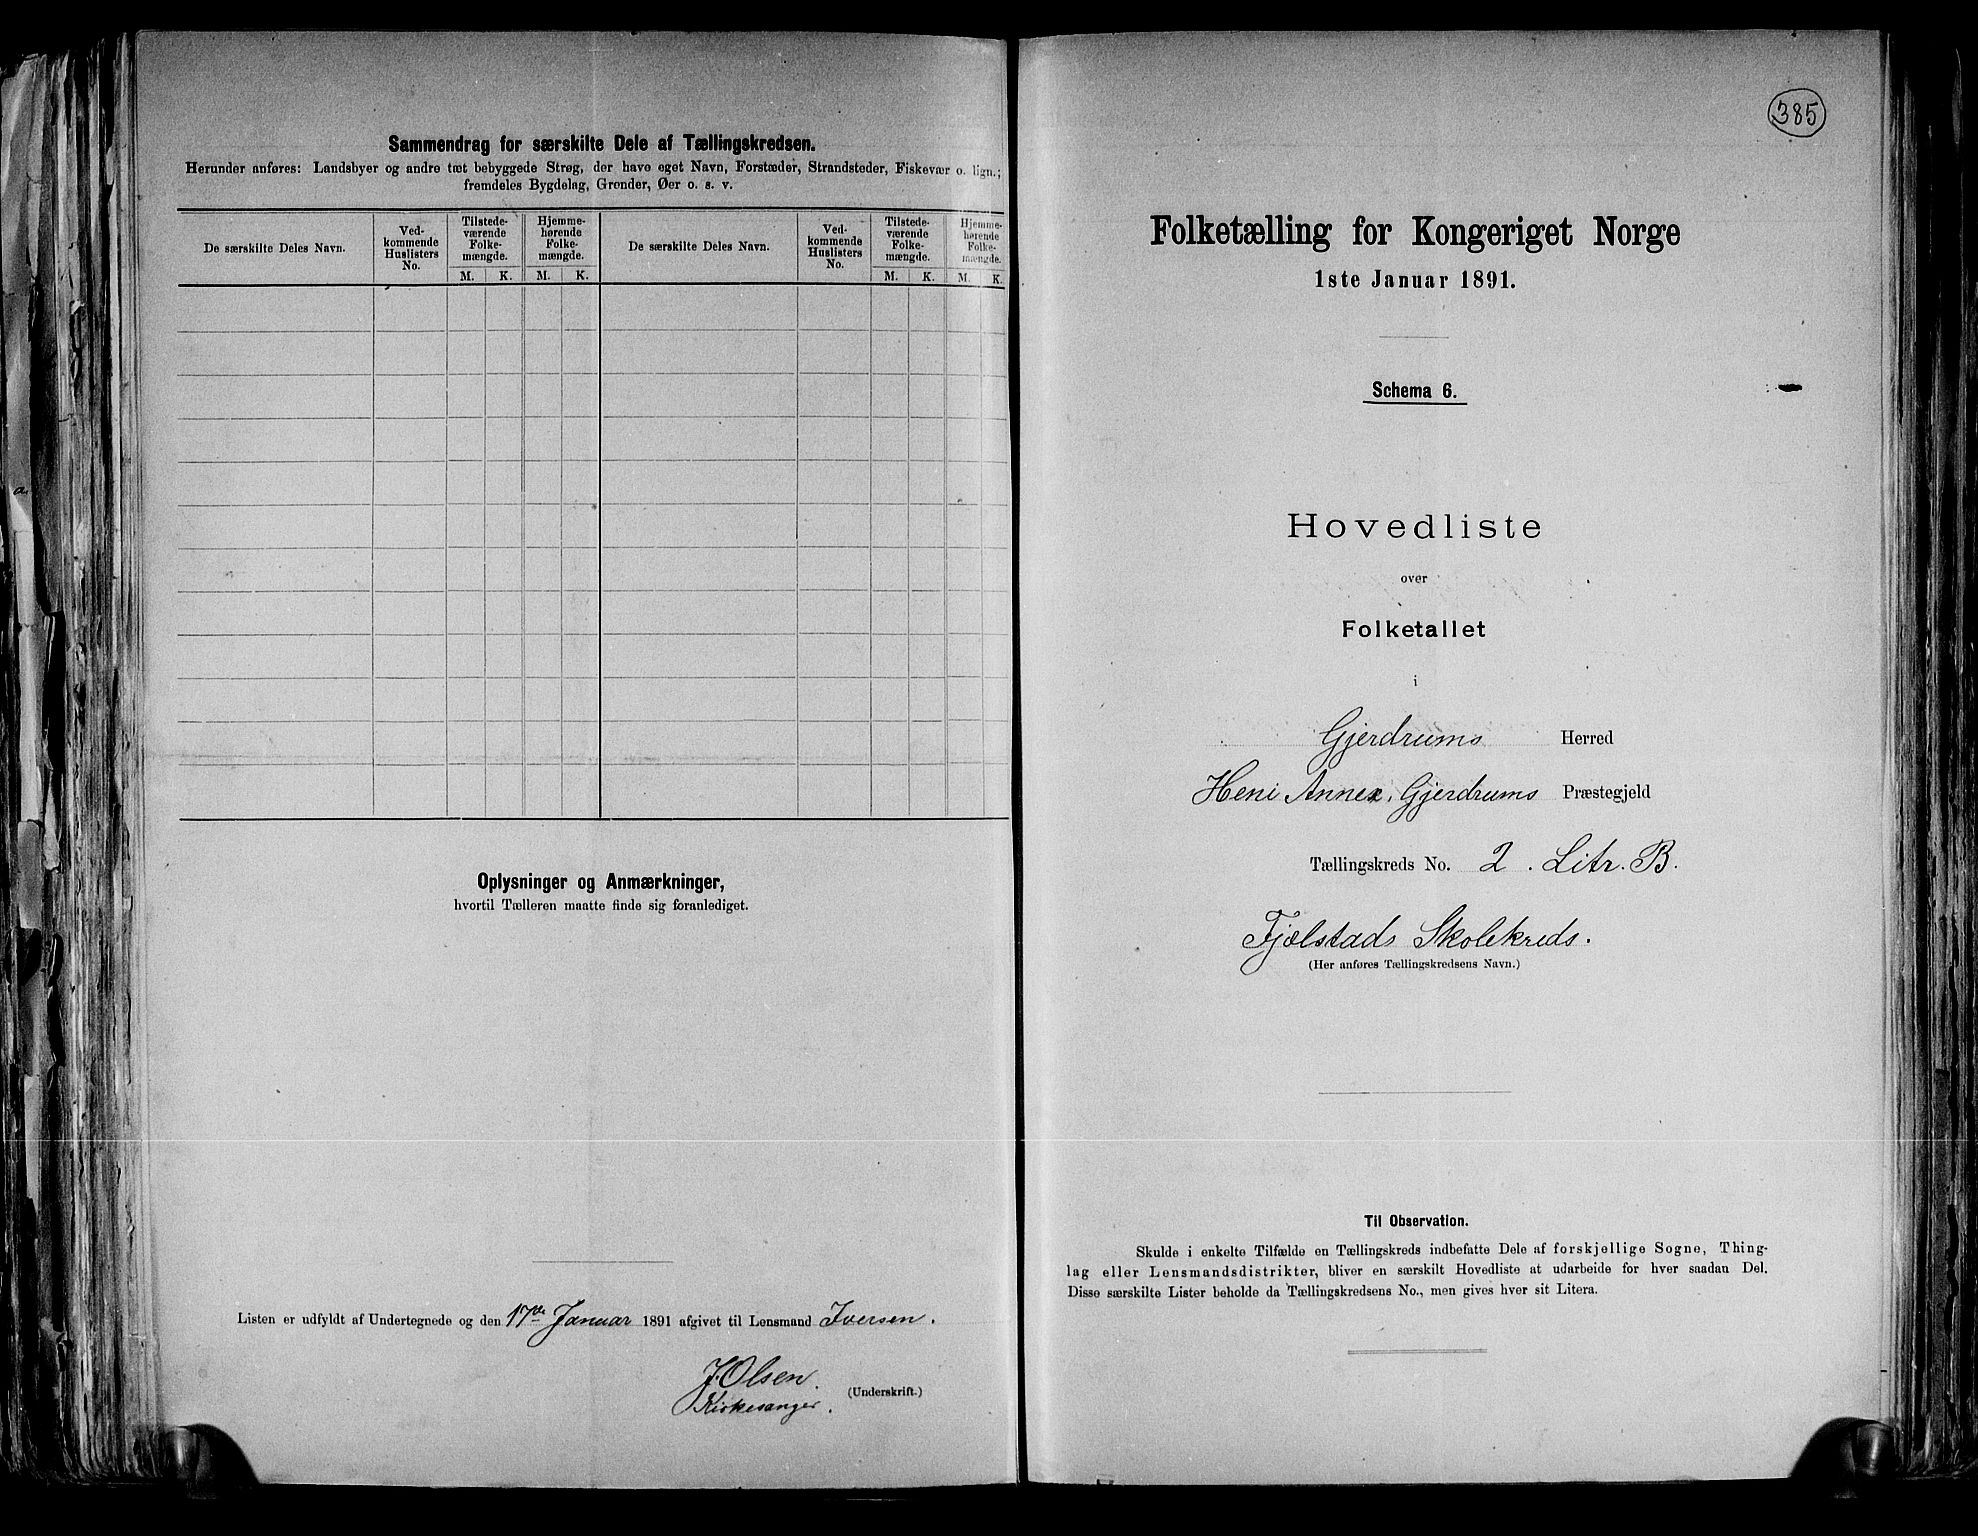 Sammendrag for særskilte Dele af Tællingskredsen.
Herunder anføres: Landsbyer og andre tæt bebyggede Strøg, der have eget Navn, Forstæder, Strandsteder, Fiskevær o. lign.;
fremdeles Bygdelag, Grender, Øer o. s. v.
De særskilte Deles Navn.
Ved-
kommende
Huslisters
No.
Tilstede-
værende
Folke-
mængde.
Hjemme-
hørende
Folke-
mængde.
M. K. M. K.
De særskilte Deles Navn.
Ved-
kommende
Huslisters
No.
Tilstede-
værende
Folke-
mængde.
Hjemme-
hørende
Folke-
mængde.
M. K. M. K.
Oplysninger og Anmærkninger,
hvortil Tælleren maatte finde sig foranlediget.
Listen er udfyldt af Undertegnede og den 17de Januar 1891 afgivet til Lensmand Iversen.
J. Olsen.
Kirkesanger.
(Underskrift.)
385
Folketælling for Kongeriget Norge
1ste Januar 1891.
Schema 6.
Hovedliste
over
Folketallet
i
Gjerdrums Herred
Heni Annex, Gjerdrums Præstegjeld
Tællingskreds No. 2. Litr. B.
Fjælstads Skolekreds.
(Her anføres Tællingskredsens Navn.)
Til Observation.
Skulde i enkelte Tilfælde en Tællingskreds indbefatte Dele af forskjellige Sogne, Thing-
lag eller Lensmandsdistrikter, bliver en særskilt Hovedliste at udarbeide for hver saadan Del.
Disse særskilte Lister beholde da Tællingskredsens No., men gives hver sit Litera.